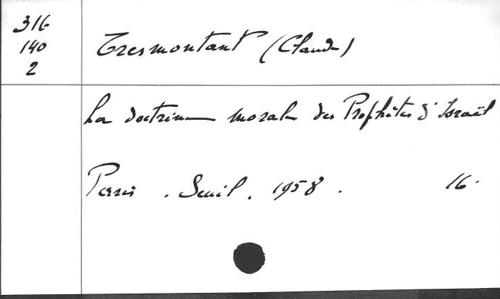 316
140
2
Tresmontant (Claude)
La doctrine morale des Prophètes d'Israël
Paris . Seuil . 1958 . 16.